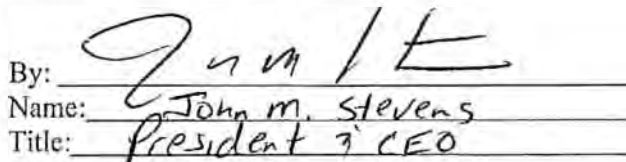 By:
Name: John M. Stevens
Title: President & CEO